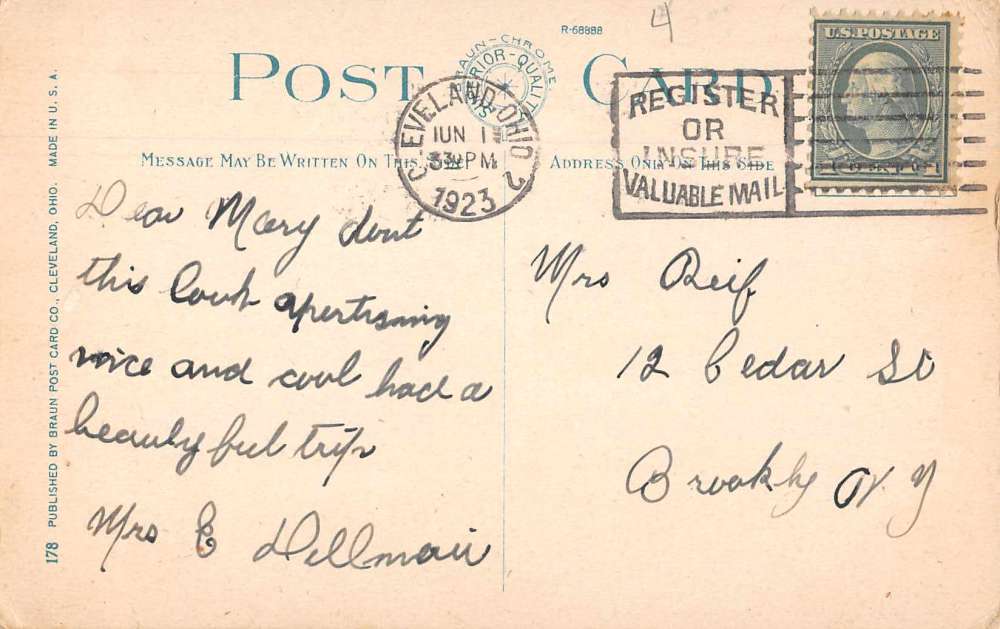 R-68888
4
U.S. POSTAGE
POST CARD
BRAUN-CHROME
SUPERIOR-QUALITY
CLEVELAND, OHIO 2
JUN 1
1923
REGISTER
OR
INSURE
VALUABLE MAIL
MESSAGE MAY BE WRITTEN ON THIS SIDE
ADDRESS ONLY ON THIS SIDE
Dear Mary dont
this look apertising
nice and cool had a
beautyful trip
Mrs E Dellmair
Mrs Reif
12 Cedar St
Brookly N Y
178 PUBLISHED BY BRAUN POST CARD CO., CLEVELAND, OHIO. MADE IN U.S.A.